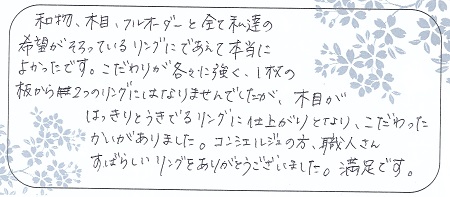 和物、木目、フルオーダーと全て私達の
希望がそろっているリングにであえて本当に
よかったです。こだわりが各々に強く、1枚の
板から2つのリングにはなりませんでしたが、木目が
はっきりとうきでるリングに仕上がりとなり、こだわった
かいがありました。コンシェルジュの方、職人さん
すばらしいリングをありがとうございました。満足です。